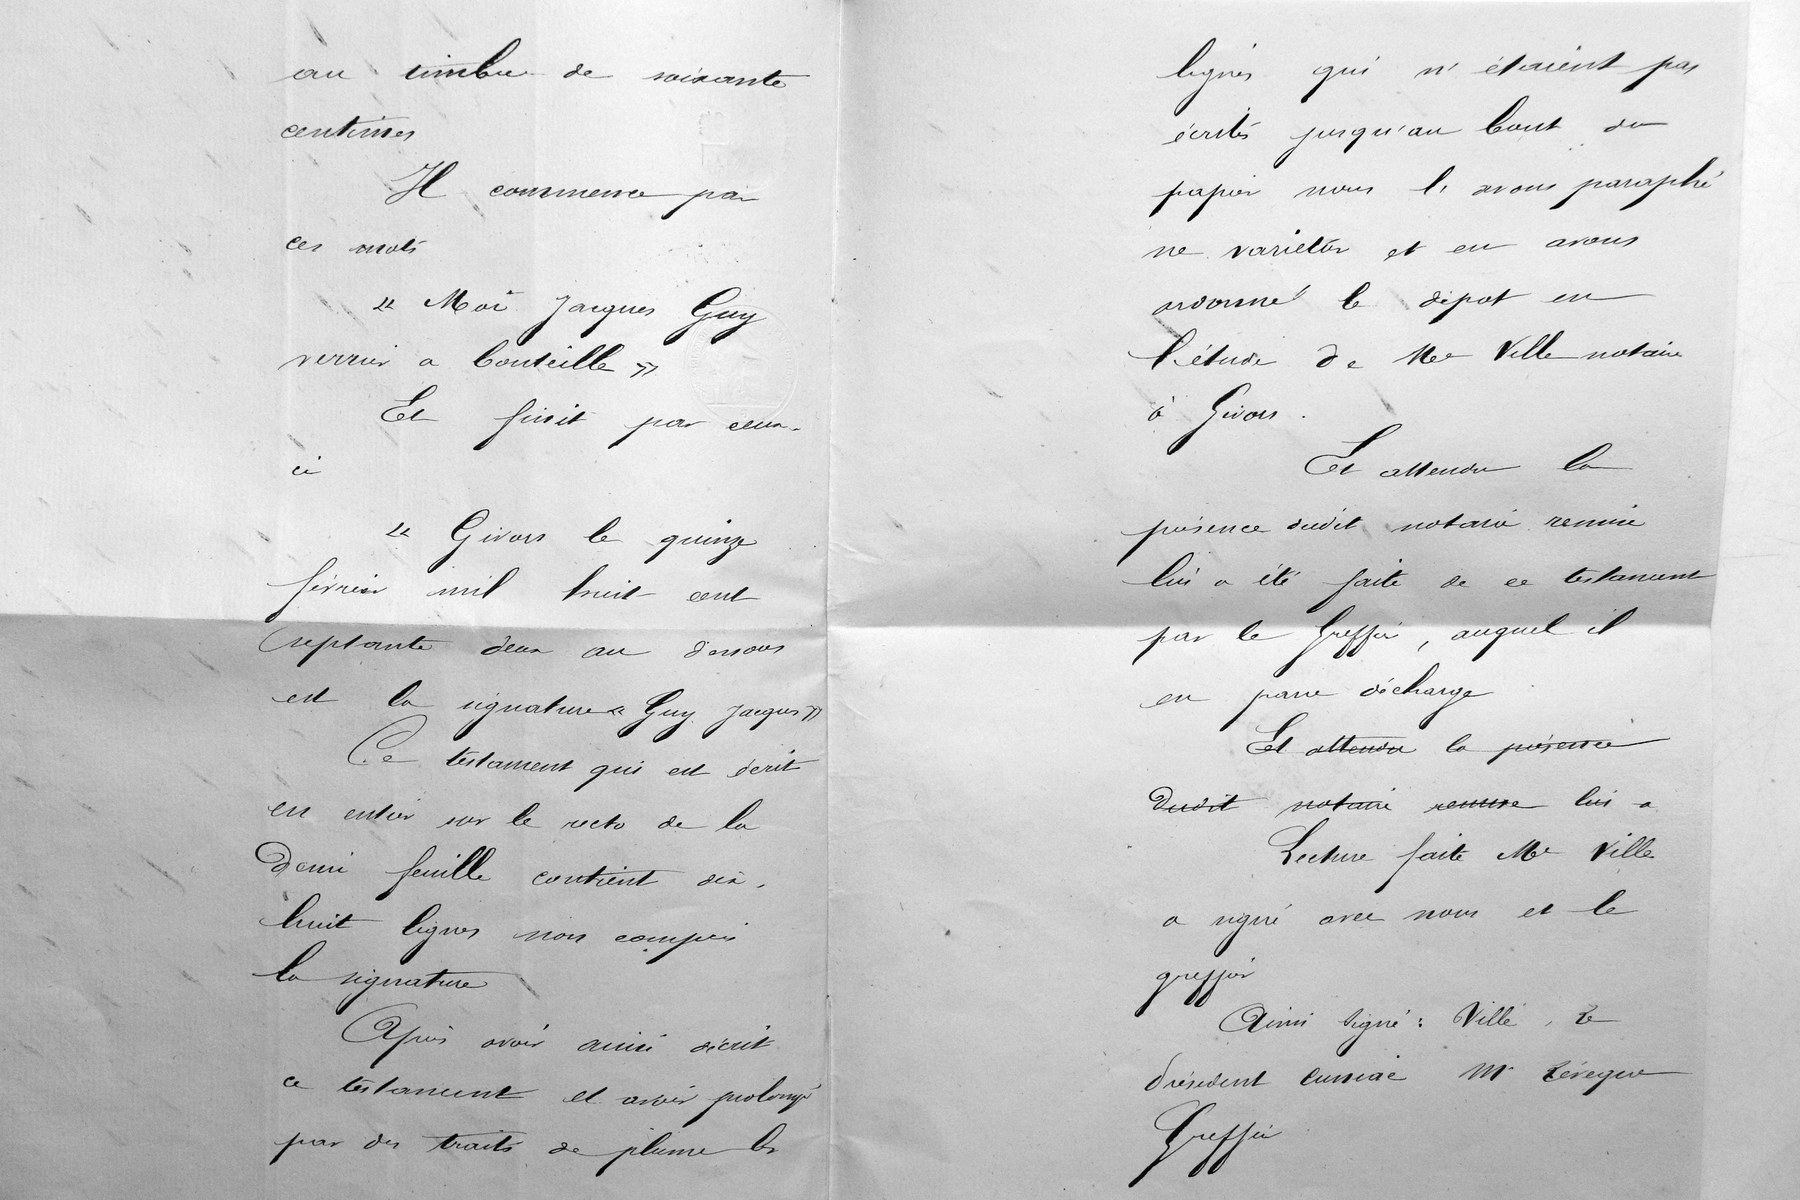 au timbre de soixante
centimes
Il commence par
ces mots
« Moi Jacques Guy
verrier a bouteille »
Et finit par ceux-
ci
« Givors le quinze
février mil huit cent
septante deux au dessous
est la signature « Guy Jacques »
Ce testament qui est écrit
en entier sur le recto de la
demi feuille contient dix-
huit lignes non compris
la signature
Après avoir ainsi décrit
ce testament et avoir prolongé
par des traits de plume les
lignes qui n'étaient pas
écrites jusqu'au bout du
papier nous l'avons paraphé
ne varietur et en avons
ordonné le dépot en
l'étude de Me Ville notaire
à Givors.
Et attendu la
présence dudit notaire remise
lui a été faite de ce testament
par le Greffier, auquel il
en passe décharge
Et attendu la présence
dudit notaire remise lui a
Lecture faite Me Ville
a signé avec nous et le
greffier
Ainsi signé : Ville, Le
président Cuniac M Lévêque
Greffier